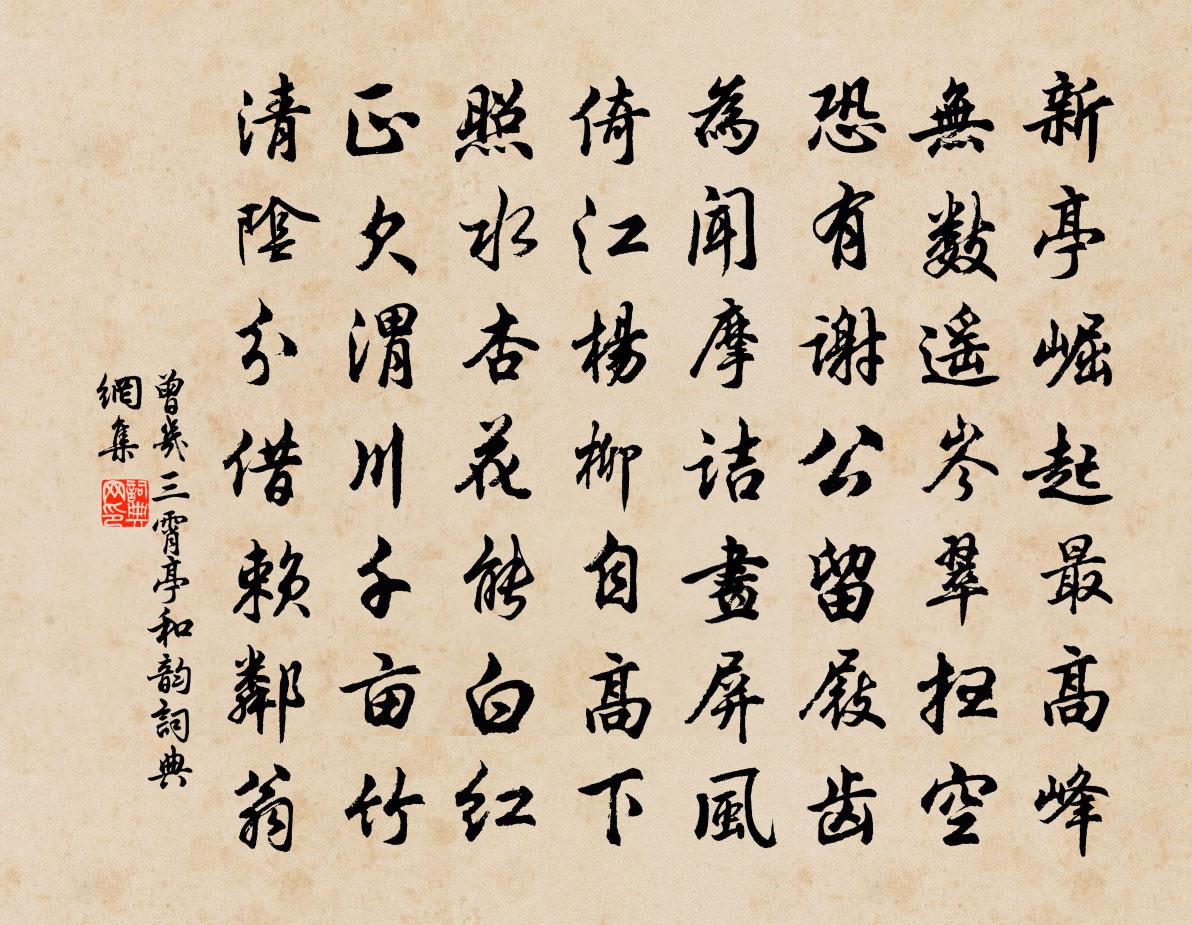 新亭崛起最高峰
無數遥岑翠扫空
恐有謝公留屐齒
為聞摩詰畫屏風
倚江楊柳自高下
照水杏花能白红
正欠渭川千亩竹
清陰分借賴鄰翁
曾幾三霄亭和韵詞典
網集
詞典
网印